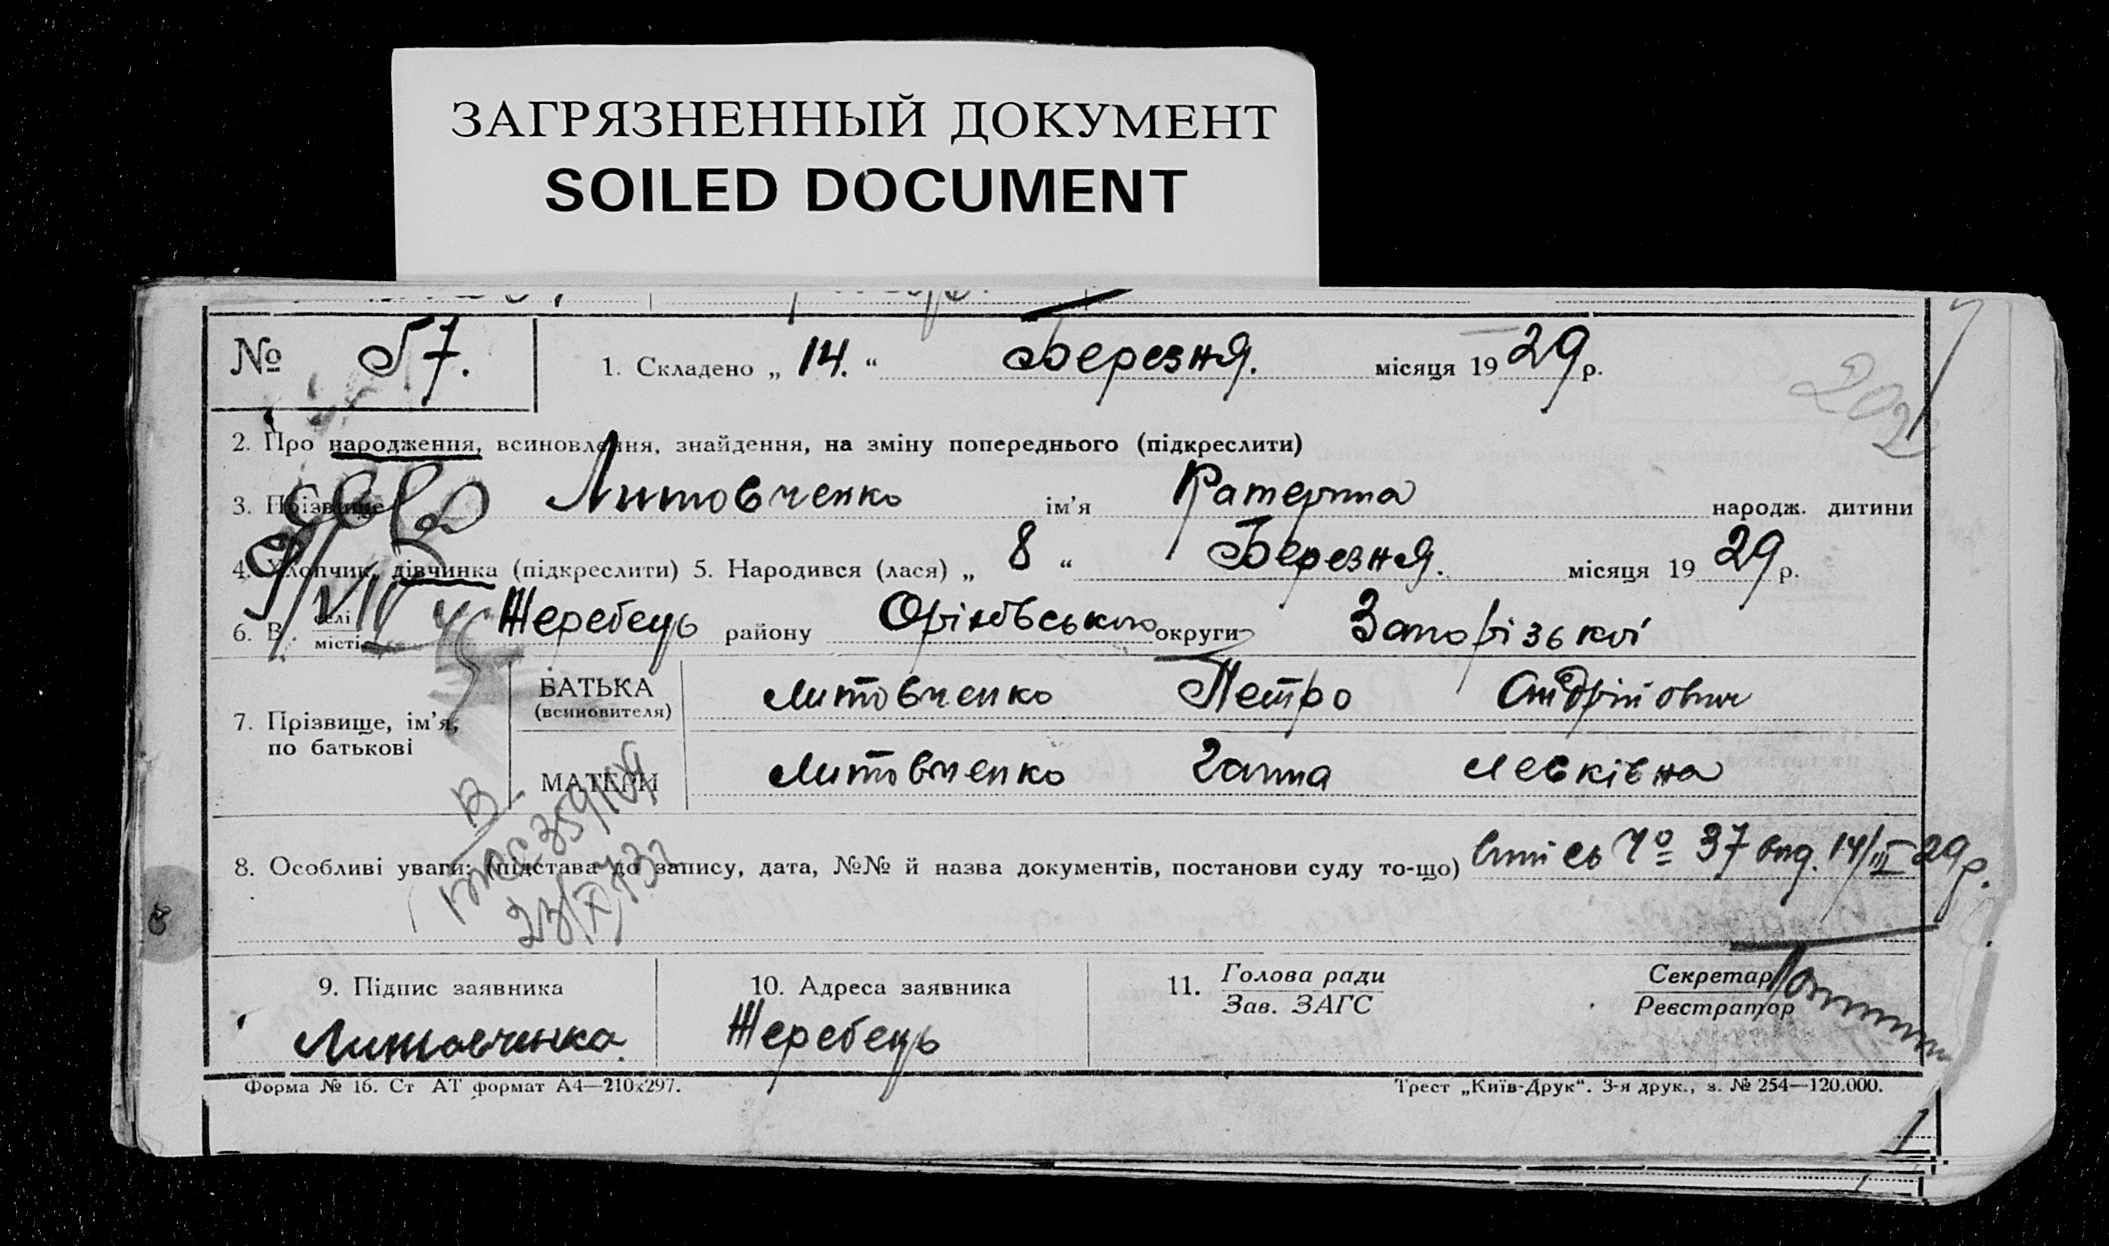 ЗАГРЯЗНЕННЫЙ ДОКУМЕНТ
SOILED DOCUMENT
№ 57. 1. Складено „ 14. “ Березня. місяця 1929 р.
202
2. Про народження, всиновлення, знайдення, на зміну попереднього (підкреслити)
3. Прізвище Литовченко ім'я Катерина народж. дитини
4. Хлопчик, дівчинка (підкреслити) 5. Народився (лася) „ 8 “ Березня. місяця 1929 р.
6. В селі місті Жеребець району Оріхівського округи Запорізької
7. Прізвище, ім'я, по батькові
БАТЬКА (всиновителя) Литовченко Петро Андрійович
МАТЕРИ Литовченко Ганна Левківна
8. Особливі уваги: (підстава до запису, дата, №№ й назва документів, постанови суду то-що) № 37 від. 14/III 29 р.
9. Підпис заявника 10. Адреса заявника 11. Голова ради Секретар
Зав. ЗАГС Реєстратор
Литовченко Жеребець
Форма № 16. Ст АТ формат А4—210х297. Трест „Київ-Друк“. 3-я друк., з. № 254—120.000.